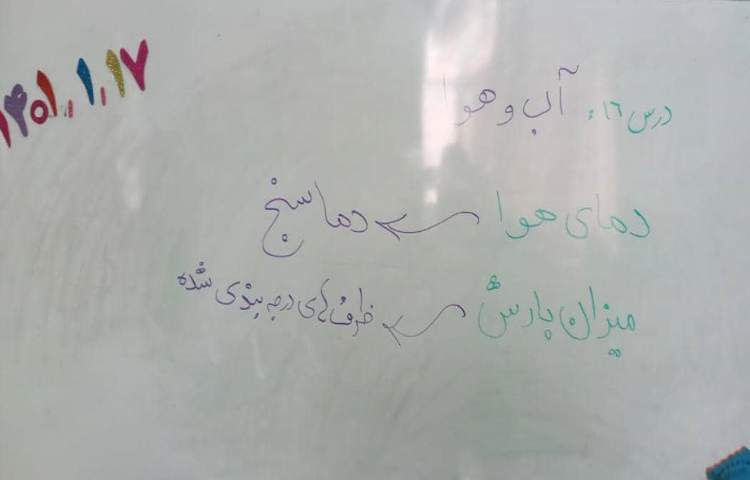 ۱۴۰۱.۱.۱۷
درس ۱۶: آب و هوا
دمای هوا ← دماسنج
میزان بارش ← ظرف های درجه بندی شده